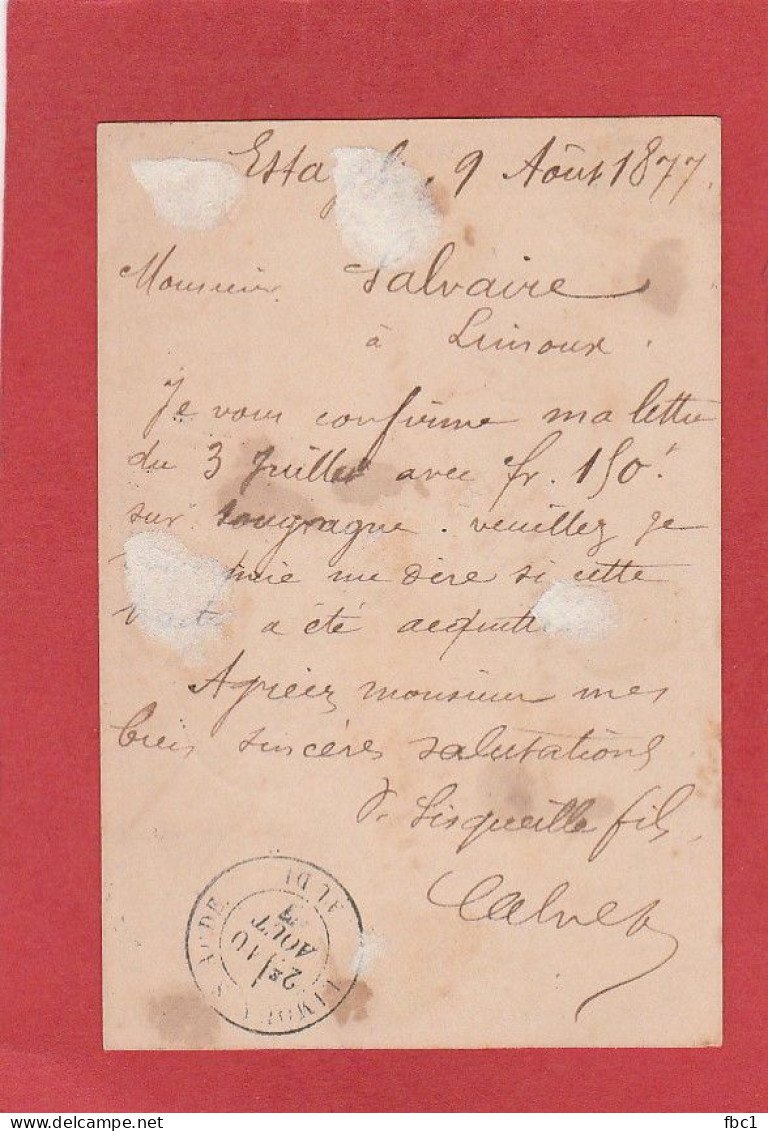 Estagel, 9 Août 1877.
Monsieur Salvaire
à Limoux.
Je vous confirme ma lettre
du 3 Juillet avec fr. 150.
sur Sougragne. veuillez je
me dire si cette
a été acquitt
Agréez monsieur mes
bien sincères salutations
P. Sisqueille fils,
Calvet
LIMOUX AUDE
2E / 10
AOUT
fbc1